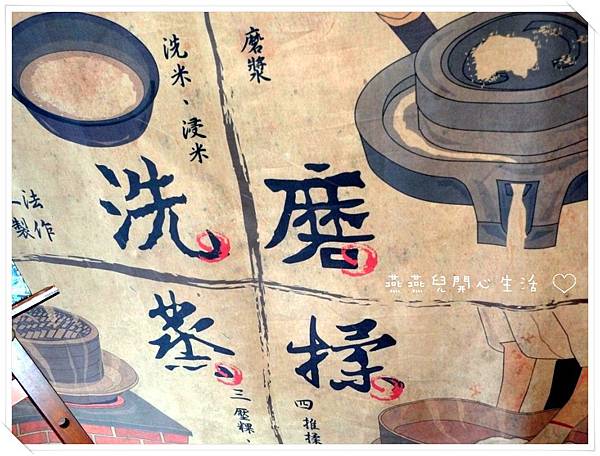 洗米、浸米
磨漿
洗
磨
法
製作
燕燕兒開心生活♡
蒸
揉
三壓粿、
四推揉